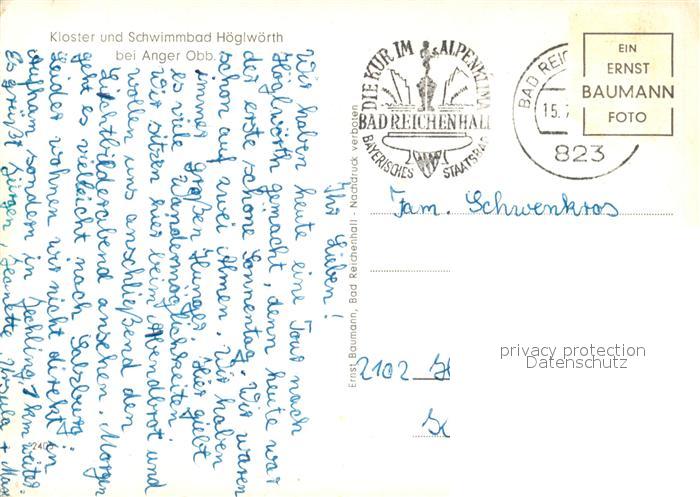 Kloster und Schwimmbad Höglwörth
bei Anger Obb.
Ihr Lieben!
Wir haben heute eine Tour nach
Höglwörth gemacht, denn heute war
der erste schöne Sonnentag. Wir waren
schon auf zwei Almen. Wir haben
immer großen Hunger. Hier giebt
es viele Wandermöglichkeiten
Wir sitzen hier beim Abendbrot und
wollen uns anschließend den
Lichtbilderabend ansehen. Morgen
geht es vielleicht nach Salzburg.
Leider wohnen wir nicht direkt in
Aufham sondern in Jechling, 1 km weiter
Es grüßt Jürgen, Jeanette Ursula + Max
2406
Ernst Baumann, Bad Reichenhall - Nachdruck verboten
DIE KUR IM ALPENKLIMA
BAD REICHENHALL
BAYERISCHES STAATSBAD
BAD REIC
15.7
823
EIN
ERNST
BAUMANN
FOTO
Fam. Schwenkros
2102 H
privacy protection
Datenschutz